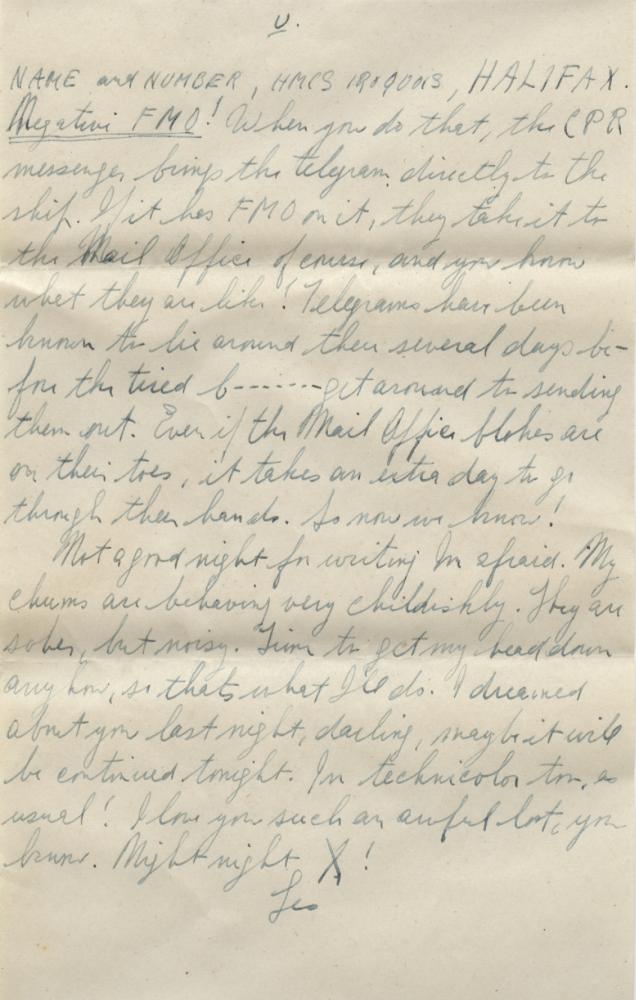 V.
NAME and NUMBER, HMCS IROQUOIS, HALIFAX.
Negative FMO! When you do that, the CPR
messenger brings the telegram directly to the
ship. If it has FMO on it, they take it to
the Mail Office of course, and you know
what they are like! Telegrams have been
known to lie around there several days be-
fore the tired b------- get around to sending
them out. Even if the Mail Office blokes are
on their toes, it takes an extra day to go
through their hands. So now we know!
Not a good night for writing Im afraid. My
chums are behaving very childishly. They are
sober, but noisy. Time to get my head down
any how, so thats what I'll do. I dreamed
about you last night, darling, maybe it will
be continued tonight. In technicolor too, as
usual! I love you such an awful lot, you
know. Night night X!
Leo